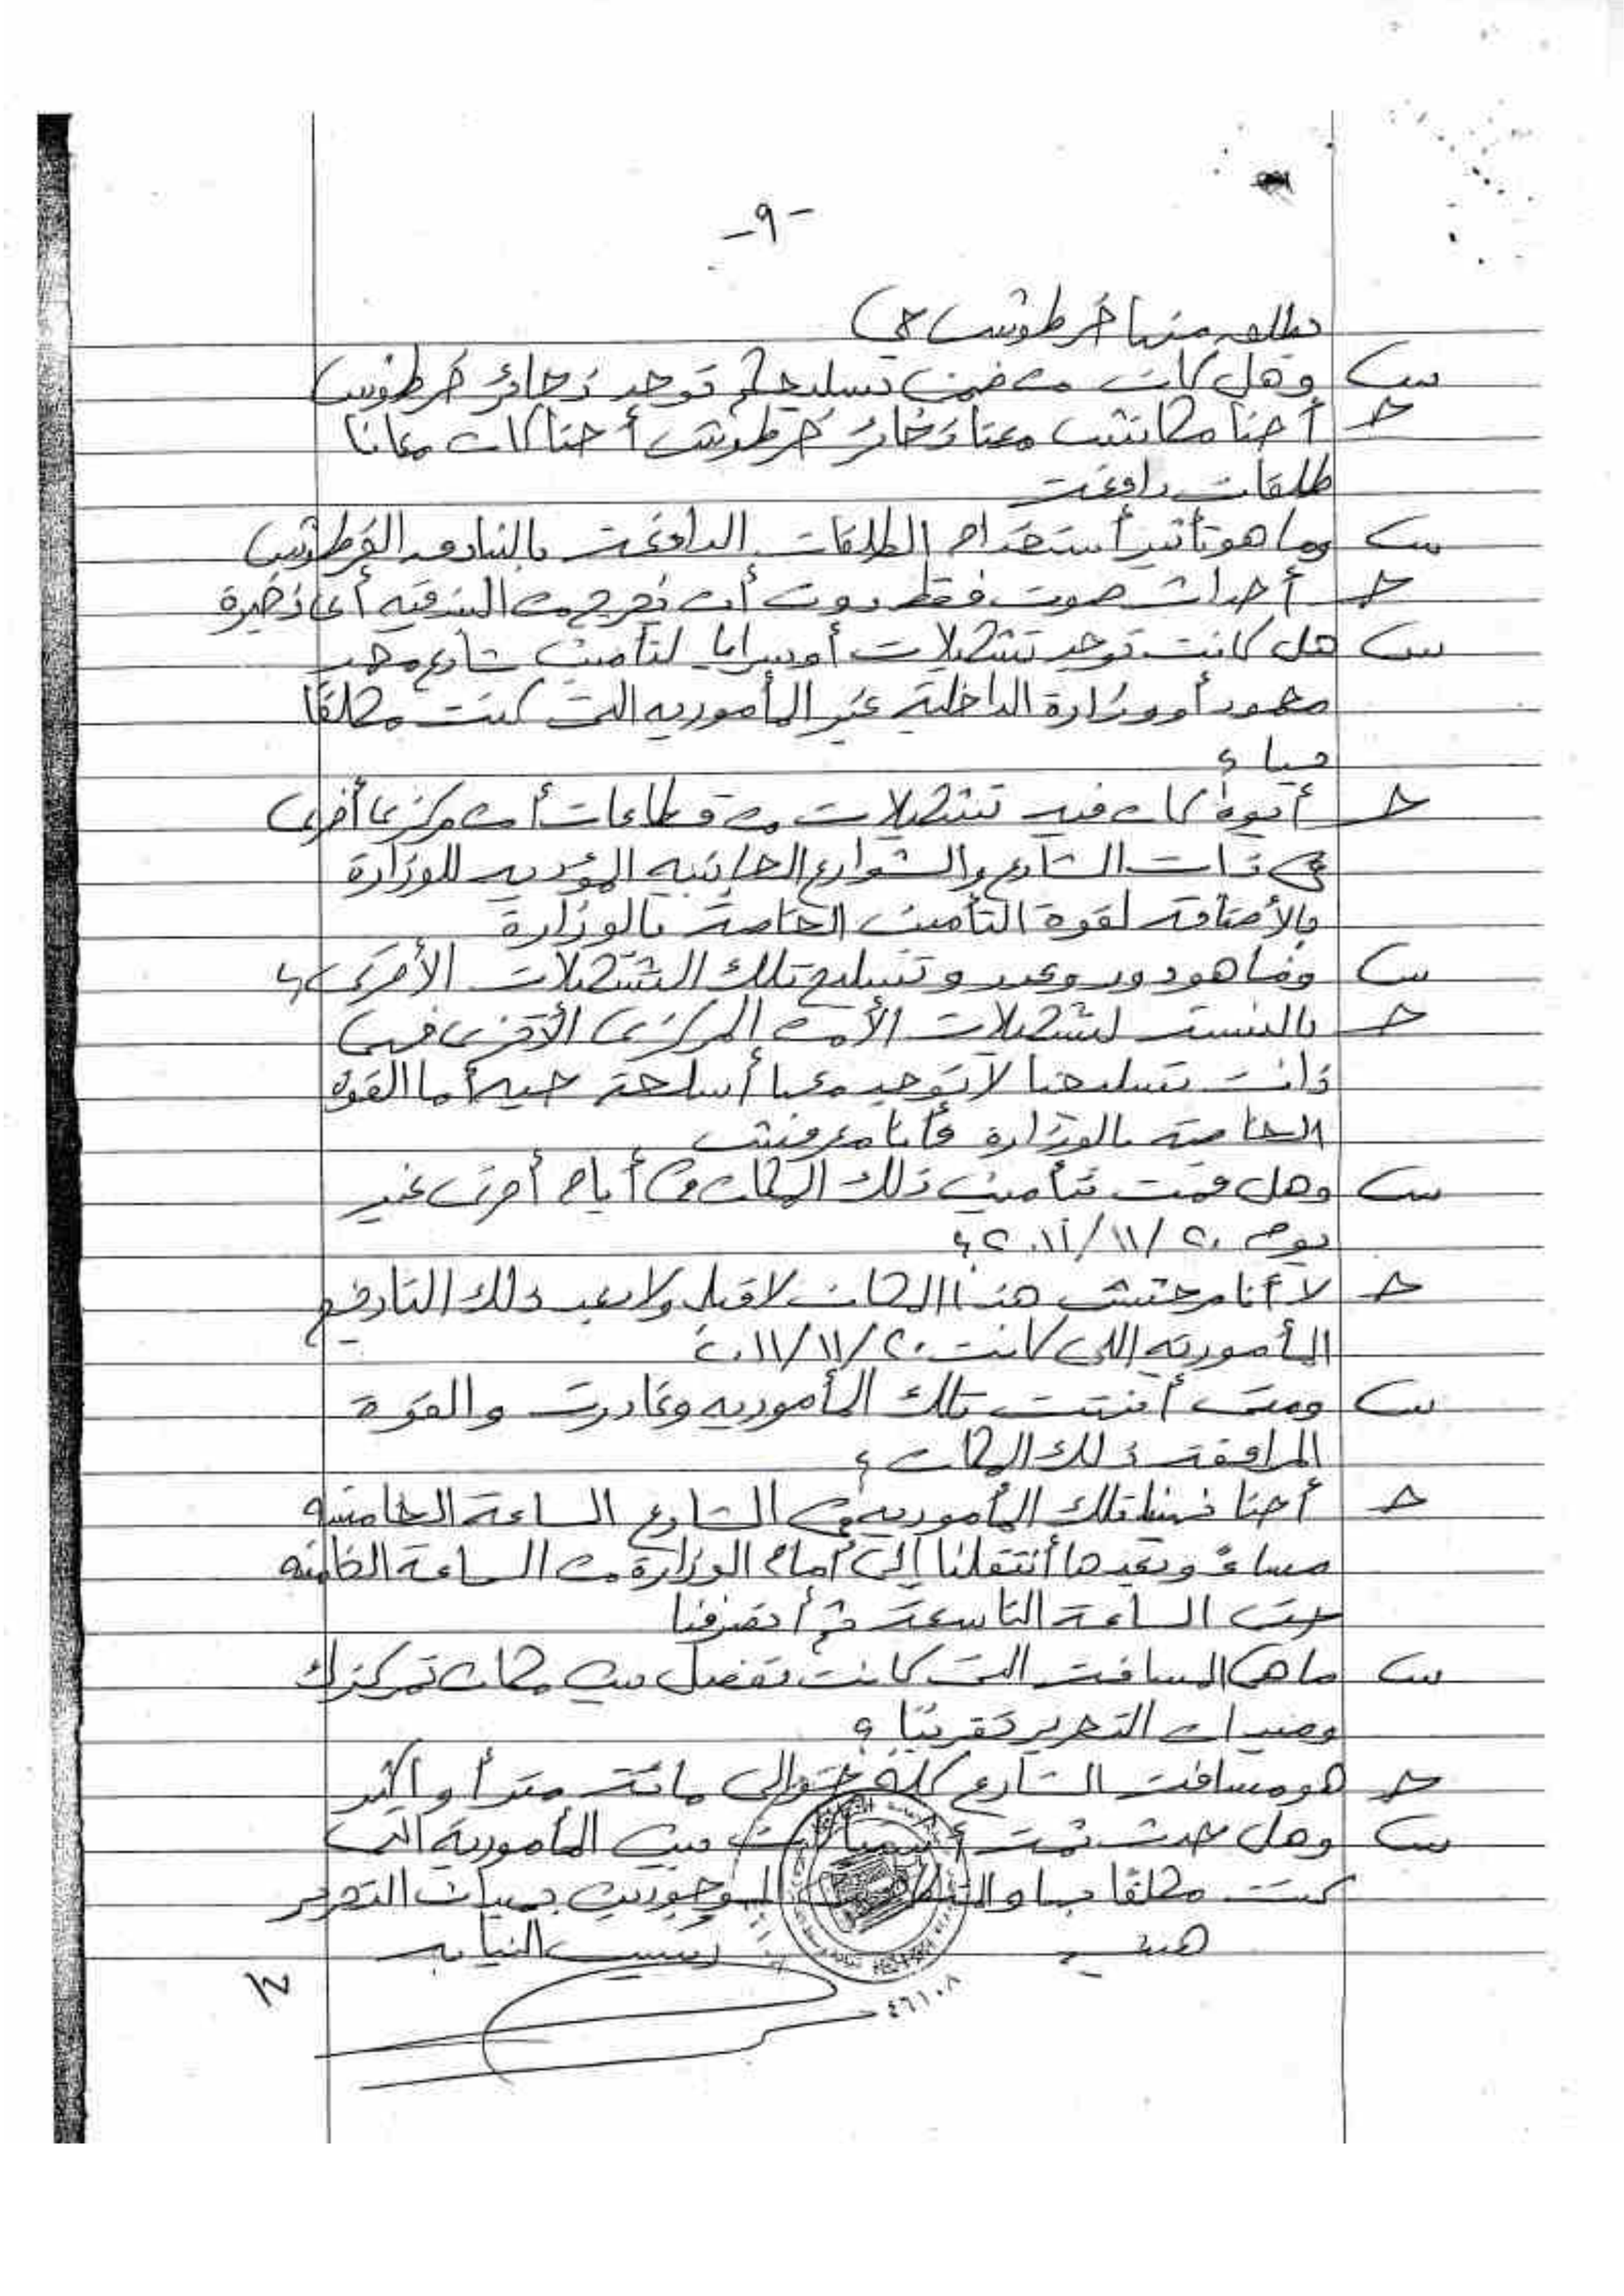 -٩-
يطلع منها خرطوش حي
س وهل كان من ضمن تسليحكم توجد ذخائر خرطوش
ج أحنا مكانتش معنا ذخائر خرطوش أحنا كان معانا
طلقات دافعة
س وما هو تأثير أستخدام الطلقات الدافعة بالبنادق الخرطوش
ج أحداث صوت فقط دون أن تخرج من البندقيه أى ذخيرة
س هل كانت توجد تشكيلات أو سرايا لتأمين شارع محمد
محمود أو وزارة الداخلية غير المأموريه التى كنت مكلفًا
بها ؟
ج أيوة كان فيه تشكيلات من قطاعات أمن مركزى أخرى
فى ذات الشارع والشوارع الجانبيه المؤديه للوزارة
بالأضافة لقوة التأمين الخاصة بالوزارة
س وما هو دور وعدد وتسليح تلك التشكيلات الأخرى ؟
ج بالنسبة لتشكيلات الأمن المركزى الأخرى فهى
ذات تسليحنا لا توجد معها أسلحة حيه أما القوة
الخاصة بالوزارة فأنا معرفش
س وهل قمت بتأمين ذلك المكان فى أيام أخرى غير
يوم ٢٠/١١/٢٠١١ ؟
ج لا أنا مرحتش هذا المكان لا قبل ولا بعد ذلك التاريخ
المأموريه اللى كانت ٢٠/١١/٢٠١١
س ومتى أنتهت تلك المأموريه وغادرت والقوة
المرافقة ذلك المكان ؟
ج أحنا تلك المأموريه فى الشارع الساعة الخامسه
مساءً وبعدها أنتقلنا إلى أمام الوزارة من الساعة الخامسه
حتى الساعة التاسعة ثم أنصرفنا
س ما هى المسافة التى كانت تفصل بين مكان تمركزك
وميدان التحرير تقريبًا ؟
ج هو مسافة الشارع كله حوالى مائة متر أو أكثر
س وهل حدث ثمة بين المأمورية التى
كنت مكلفًا بها و الموجودين بميدان التحرير
رئيس النيابه
٤٦١٠٨